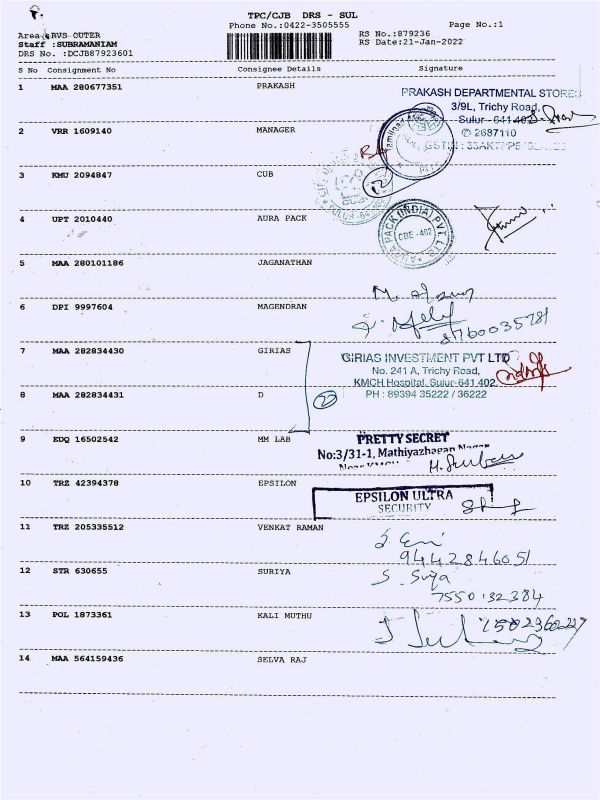 TPC/CJB DRS - SUL
Phone No.:0422-3505555
Page No.:1
Area :RVS OUTER
RS No.:879236
Staff :SUBRAMANIAM
RS Date:21-Jan-2022
DRS No. :DCJB87923601
S No Consignment No Consignee Details Signature
1 MAA 280677351 PRAKASH
PRAKASH DEPARTMENTAL STORES
3/9L, Trichy Road,
Sulur - 641 402
✆ 2687110
2 VRR 1609140 MANAGER
3 KMU 2094847 CUB
12
4 UPT 2010440 AURA PACK
AURA PACK (INDIA) PVT LTD
CBE - 402
5 MAA 280101186 JAGANATHAN
6 DPI 9997604 MAGENDRAN
8760035781
7 MAA 282834430 GIRIAS
GIRIAS INVESTMENT PVT LTD
No. 241 A, Trichy Road,
KMCH Hospital, Sulur-641 402
PH : 89394 35222 / 36222
8 MAA 282834431 D
9 EDQ 16502542 MM LAB
PRETTY SECRET
No:3/31-1, Mathiyazhagan Nagar
Near KMCH
10 TRZ 42394378 EPSILON
EPSILON ULTRA
SECURITY
11 TRZ 205335512 VENKAT RAMAN
9442846051
12 STR 630655 SURIYA
S. Surya
7550132384
13 POL 1873361 KALI MUTHU
14 MAA 564159436 SELVA RAJ